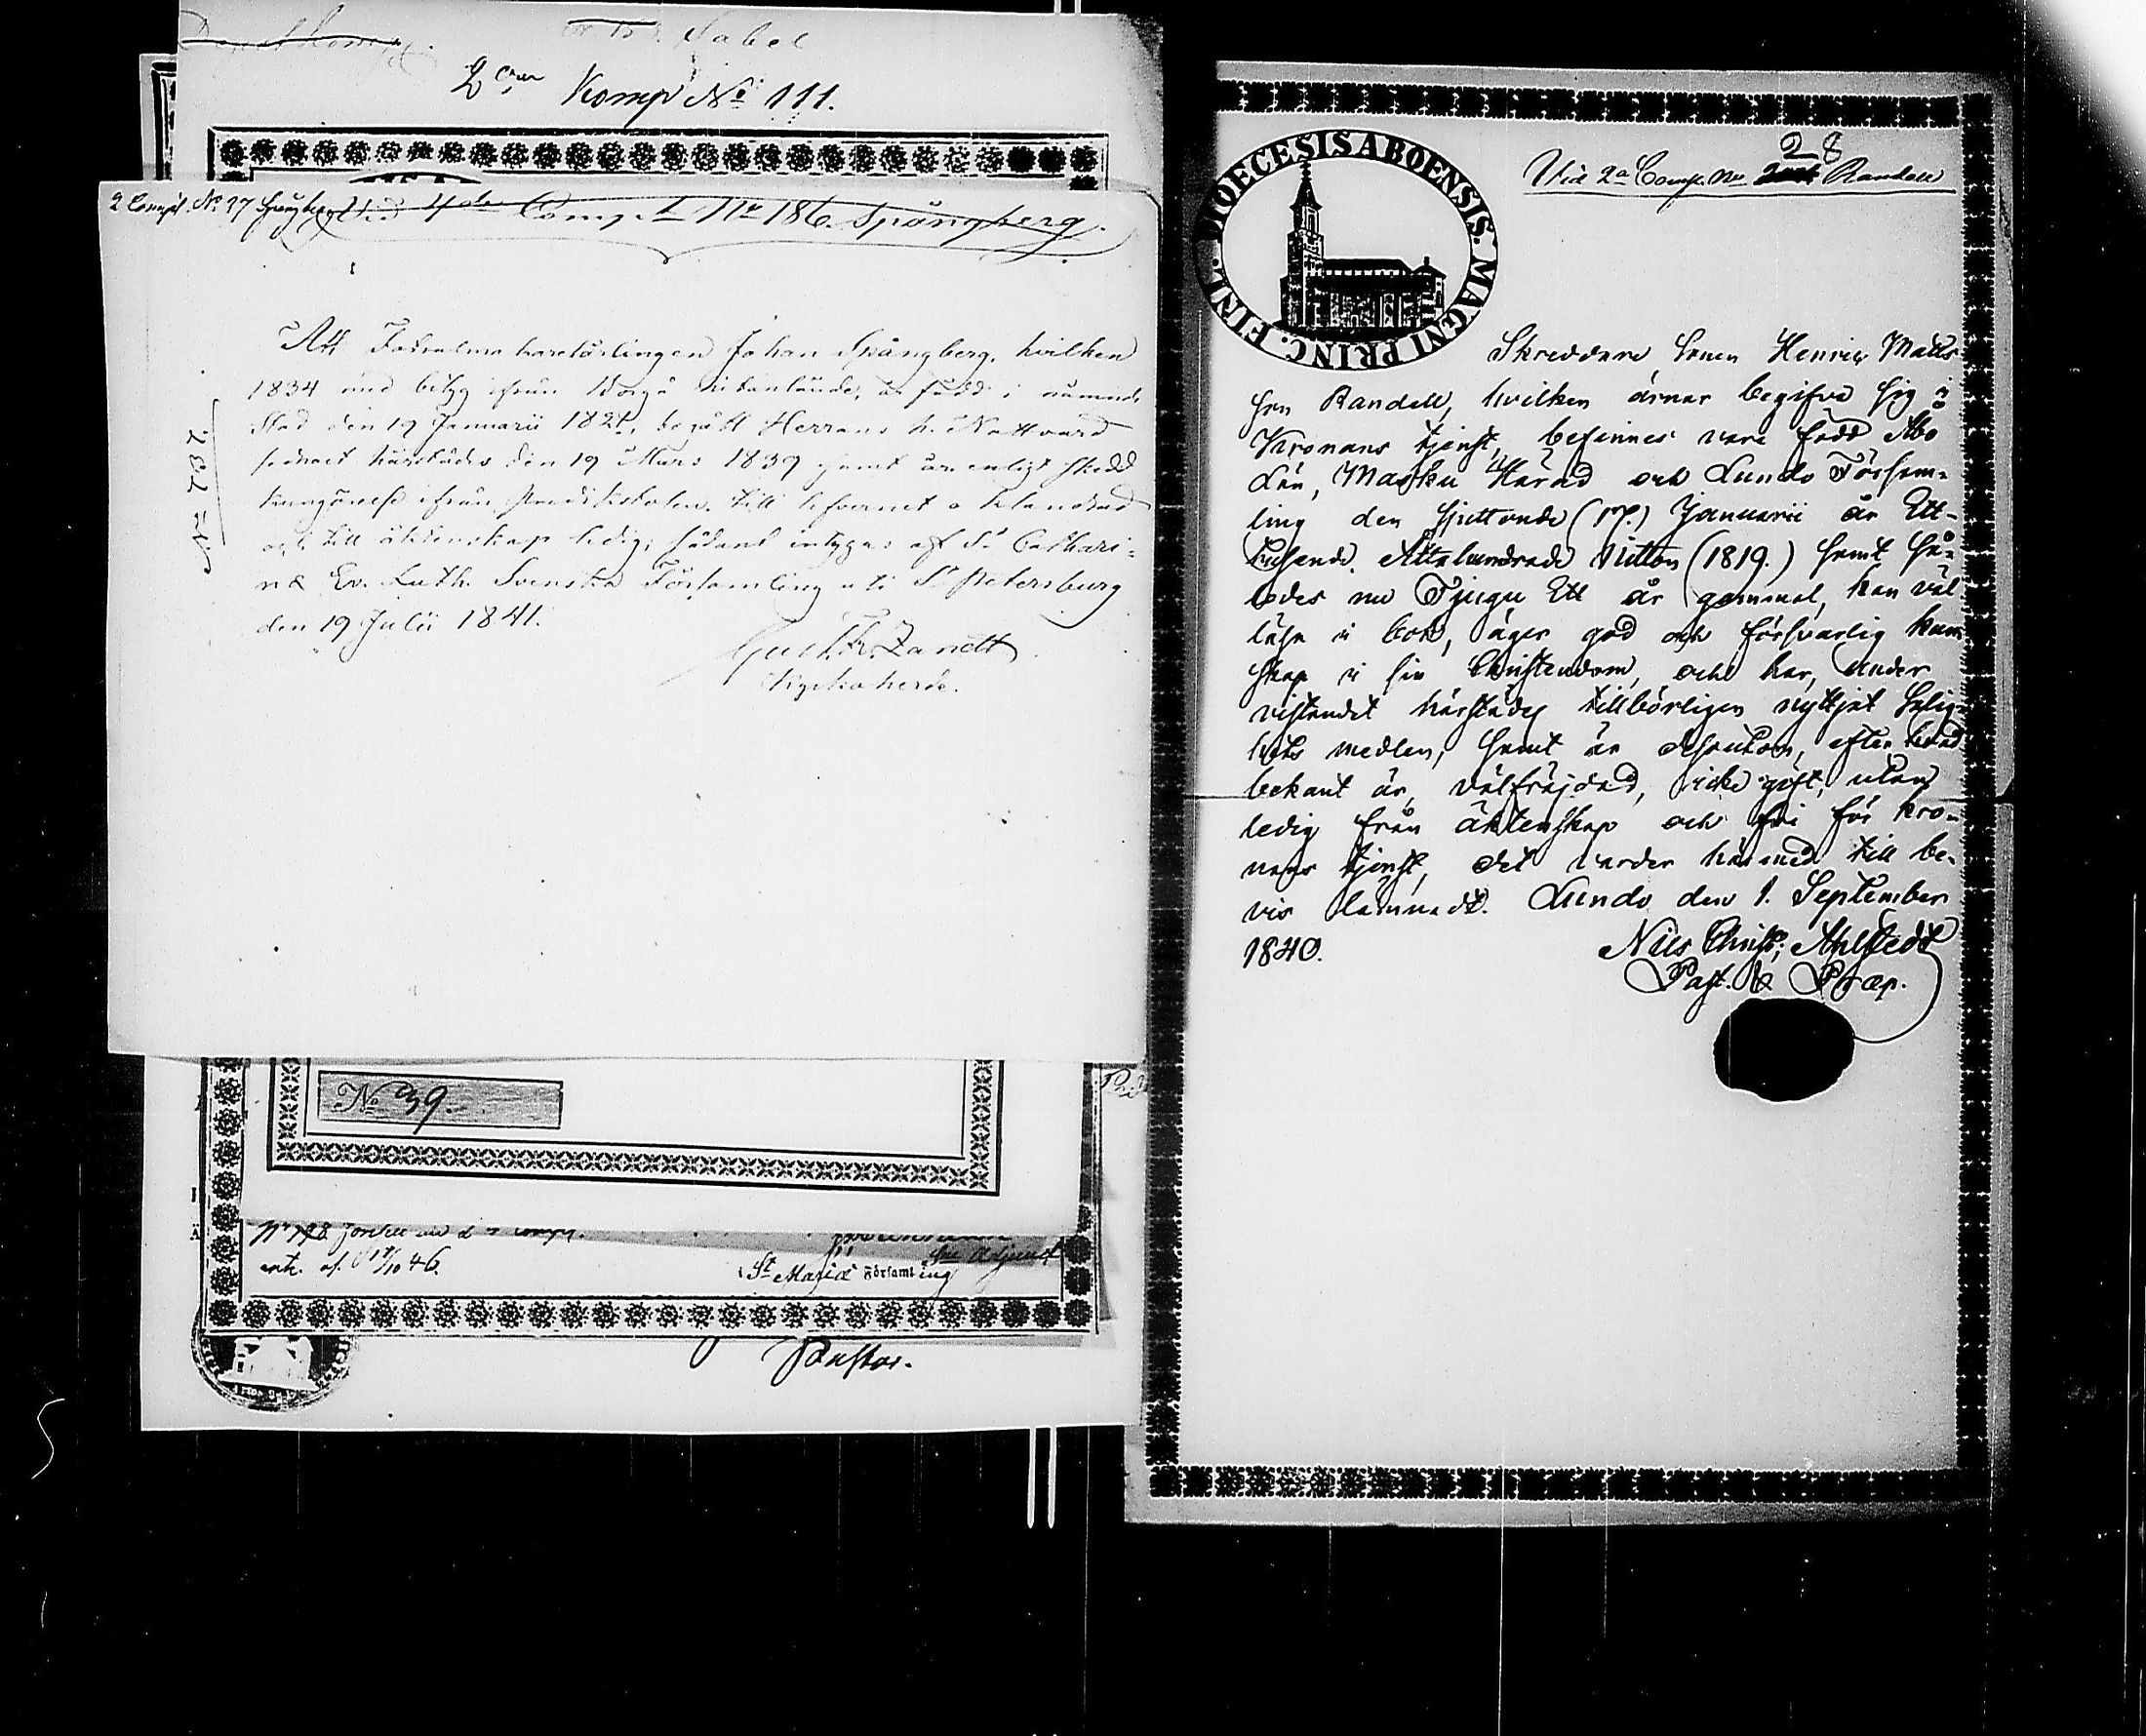 Sabel
2 Komp No 111.
2 Comp. No 27 Spångberg 4de Comp. No 186. Spångberg.
No 737.
Att Fadrelösa Johan Spångberg, hvilken
1834 med betyg ifrån Borgå hitanländt, är född i nämnde
Stad den 19 Januarii 1821, begått Herrans h. Nattvard
sednast härstädes den 19 Mars 1839 samt är enligt skedd
kungörelse ifrån Predikstolen, till lefvernet oklandrad
och till äktenskap ledig; sådant intygas af St Cathari-
næ Ev. Luth. Svenska Församling uti St Petersburg
den 19 Julii 1841.
Gust. Fr. Zandt
Kyrkoherde.
No 39.
No 198
af 1846.
St Mariæ Församling
Adjunct
Pastor.
DIOECESIS ABOENSIS. MAGNI PRINC. FINL.
28
Vid 2a Comp. No Randell
Skreddare Sonen Henric Matts
son Randell, hvilken ärnar begifva sig i
Kronans tjenst, befinnes vara född Åbo
Län, Masku Härad och Lundo Försam-
ling den sjuttonde (17.) Januarii år Ett-
tusende Åttahundrade Nitton (1819.) samt så-
ledes nu Tjugu Ett år gammal, kan väl
läsa i bok, äger god och försvarlig kun-
skap i sin Christendom, och har, under
vistandet härstädes tillbörligen nyttjat Salig-
hets medlen; samt är dessutom, efter hvad
bekant är, välfräjdad, icke gift, utan
ledig från äktenskap och fri för kro-
nans tjenst, det varder härmed till be-
vis lämnadt. Lundo den 1. September
1840.
Nils Christ. Ahlstedt
Past. & Præp.